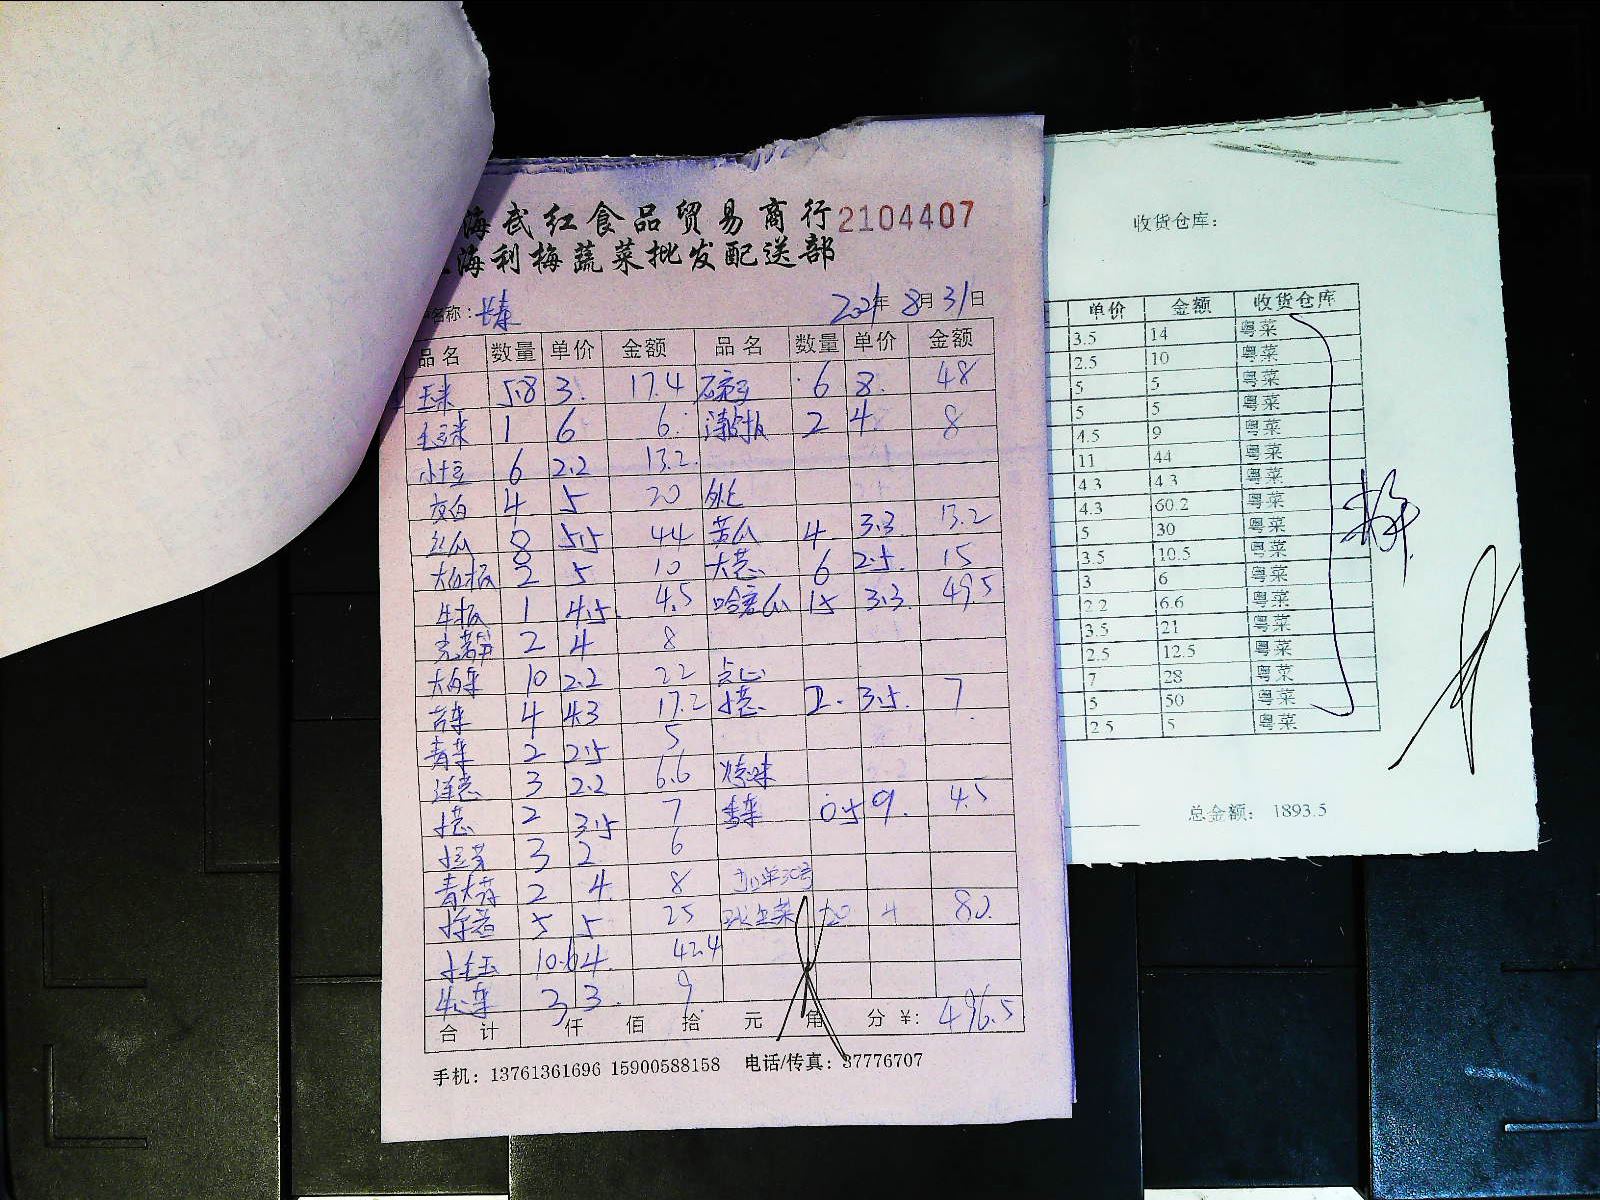 海武红食品贸易商行 2104407
海利梅蔬菜批发配送部
名称： 2021年 8月 31日
品名 数量 单价 金额 品名 数量 单价 金额
玉米 5.8 3. 17.4 6 8. 48
毛豆米 1 6 6. 2 4 8
小土豆 6 2.2 13.2
茭白 4 5 20
丝瓜 8 5.5 44 苦瓜 4 3.3 13.2
2 5 10 大葱 6 2.5 15
1 4.5 4.5 哈密瓜 15 3.3 49.5
2 4 8
大白菜 10 2.2 22 点心
4 4.3 17.2 小葱 2. 3.5. 7
青菜 2 2.5 5
洋葱 3 2.2 6.6 烧味
小葱 2 3.5 7 香菜 0.5 9. 4.5
3 2 6
青大蒜 2 4. 8 加单30号
5 5 25 生菜 20 4 80
10.6 4. 42.4
3 3. 9
合计 仟 佰 拾 元 角 分 ¥: 496.5
手机：13761361696 15900588158 电话/传真：37776707
收货仓库：
单价 金额 收货仓库
3.5 14 粤菜
2.5 10 粤菜
5 5 粤菜
5 5 粤菜
4.5 9 粤菜
11 44 粤菜
4.3 43 粤菜
4.3 60.2 粤菜
5 30 粤菜
3.5 10.5 粤菜
3 6 粤菜
2.2 6.6 粤菜
3.5 21 粤菜
2.5 12.5 粤菜
7 28 粤菜
5 50 粤菜
2.5 5 粤菜
总金额： 1893.5